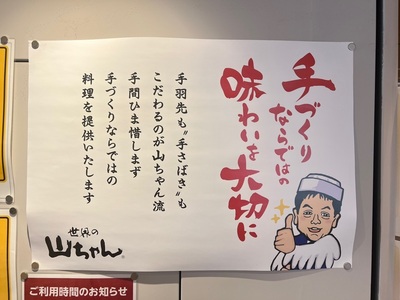 手づくり
ならではの
味わいを
大切に
手羽先も〝手さばき〟も
こだわるのが山ちゃん流
手間ひま惜しまず
手づくりならではの
料理を提供いたします
世界の
山ちゃん
ご利用時間のお知らせ